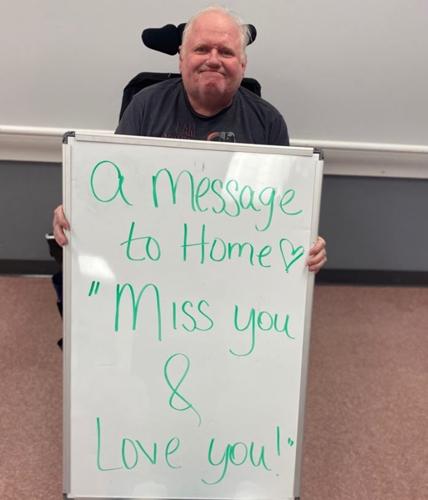 a message
to Home♡
"Miss you
&
Love you!"